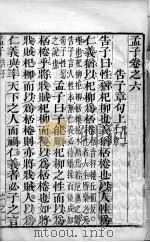 孟子卷之六
告子章句上
告子曰性猶杞柳也義猶桮棬也以人性爲
仁義猶以杞柳爲桮棬
孟子曰子能順杞柳之性而以爲
桮棬乎將戕賊杞柳而後以爲桮棬也如將
戕賊杞柳而以爲桮棬則亦將戕賊人以爲
仁義與率天下之人而禍仁義者必子之言